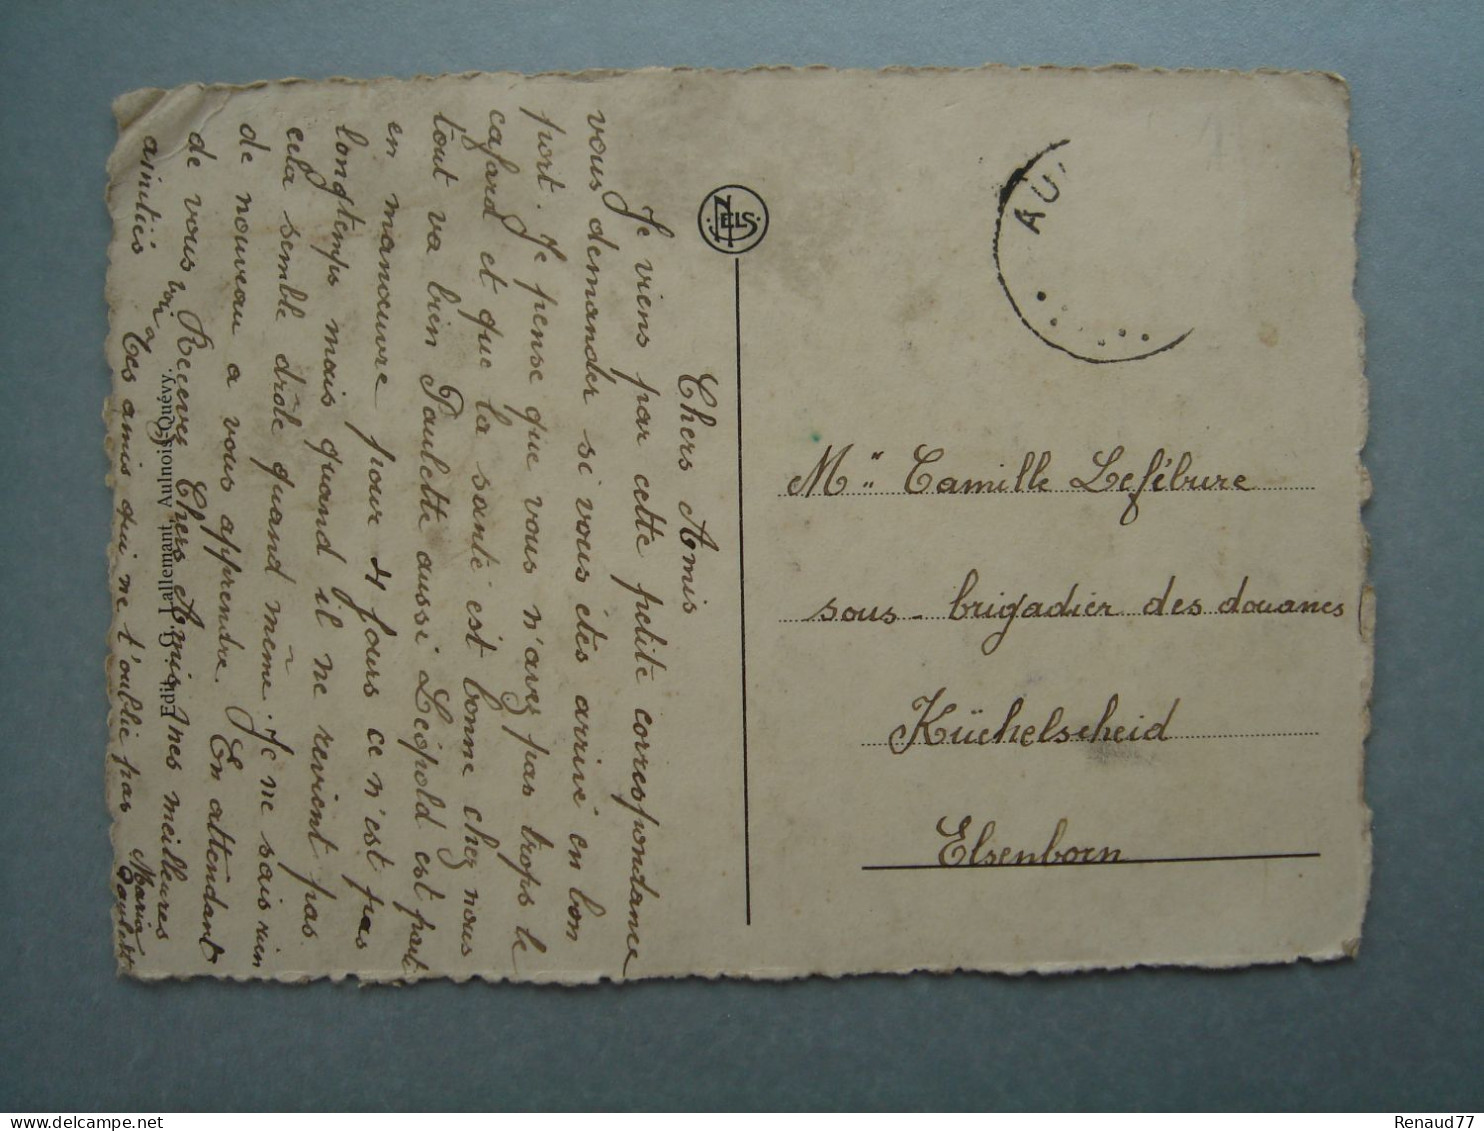 Chers Amis
Je viens par cette petite correspondance
vous demander si vous êtes arrivé en bon
port. Je pense que vous n'avez pas trops le
cafard et que la santé est bonne chez nous
tout va bien Paulette aussi Léopold est parti
en manœuvre pour 4 jours ce n'est pas
longtemps mais quand il ne revient pas
cela semble drôle quand même. Je ne sais rien
de nouveau a vous apprendre. En attendant
de vous voir Recevez Chers Amis mes meilleures
amitiés Tes amis qui ne t'oublie pas Maria
Paulette
Edit. G. Lallemant, Aulnois-Quévy.
NELS
AU
Mr Camille Lefébure
sous-brigadier des douanes
Küchelscheid
Elsenborn
Renaud77